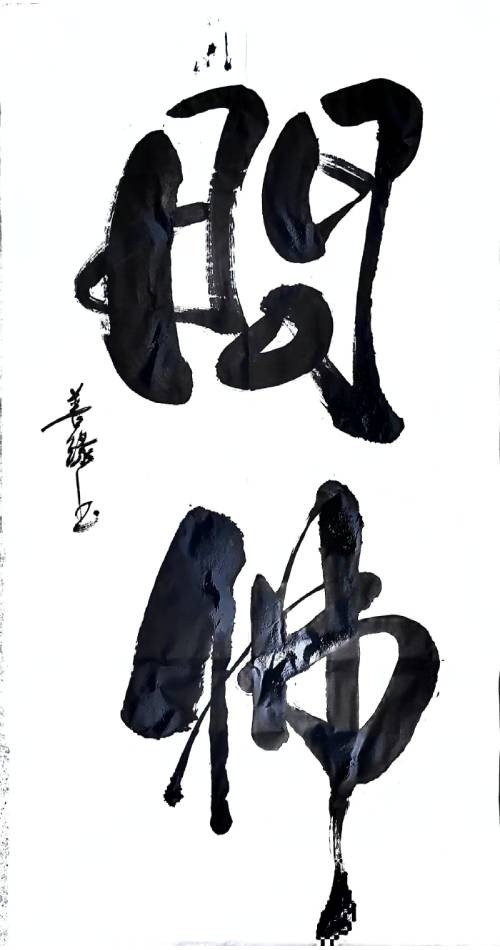 問佛
善緣书